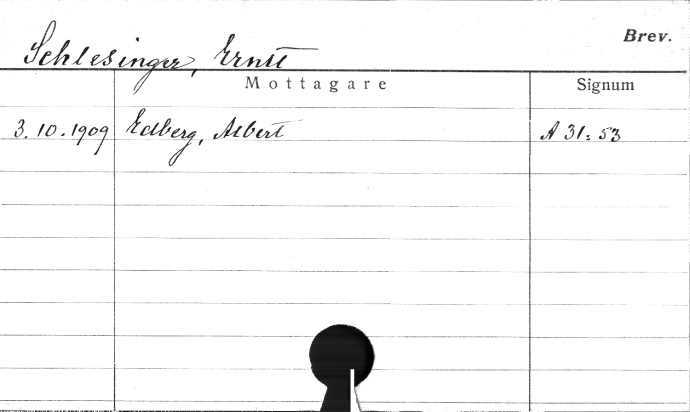 Brev.
Schlesinger, Ernst
Mottagare Signum
3. 10. 1909 Edberg, Albert A 31: 53